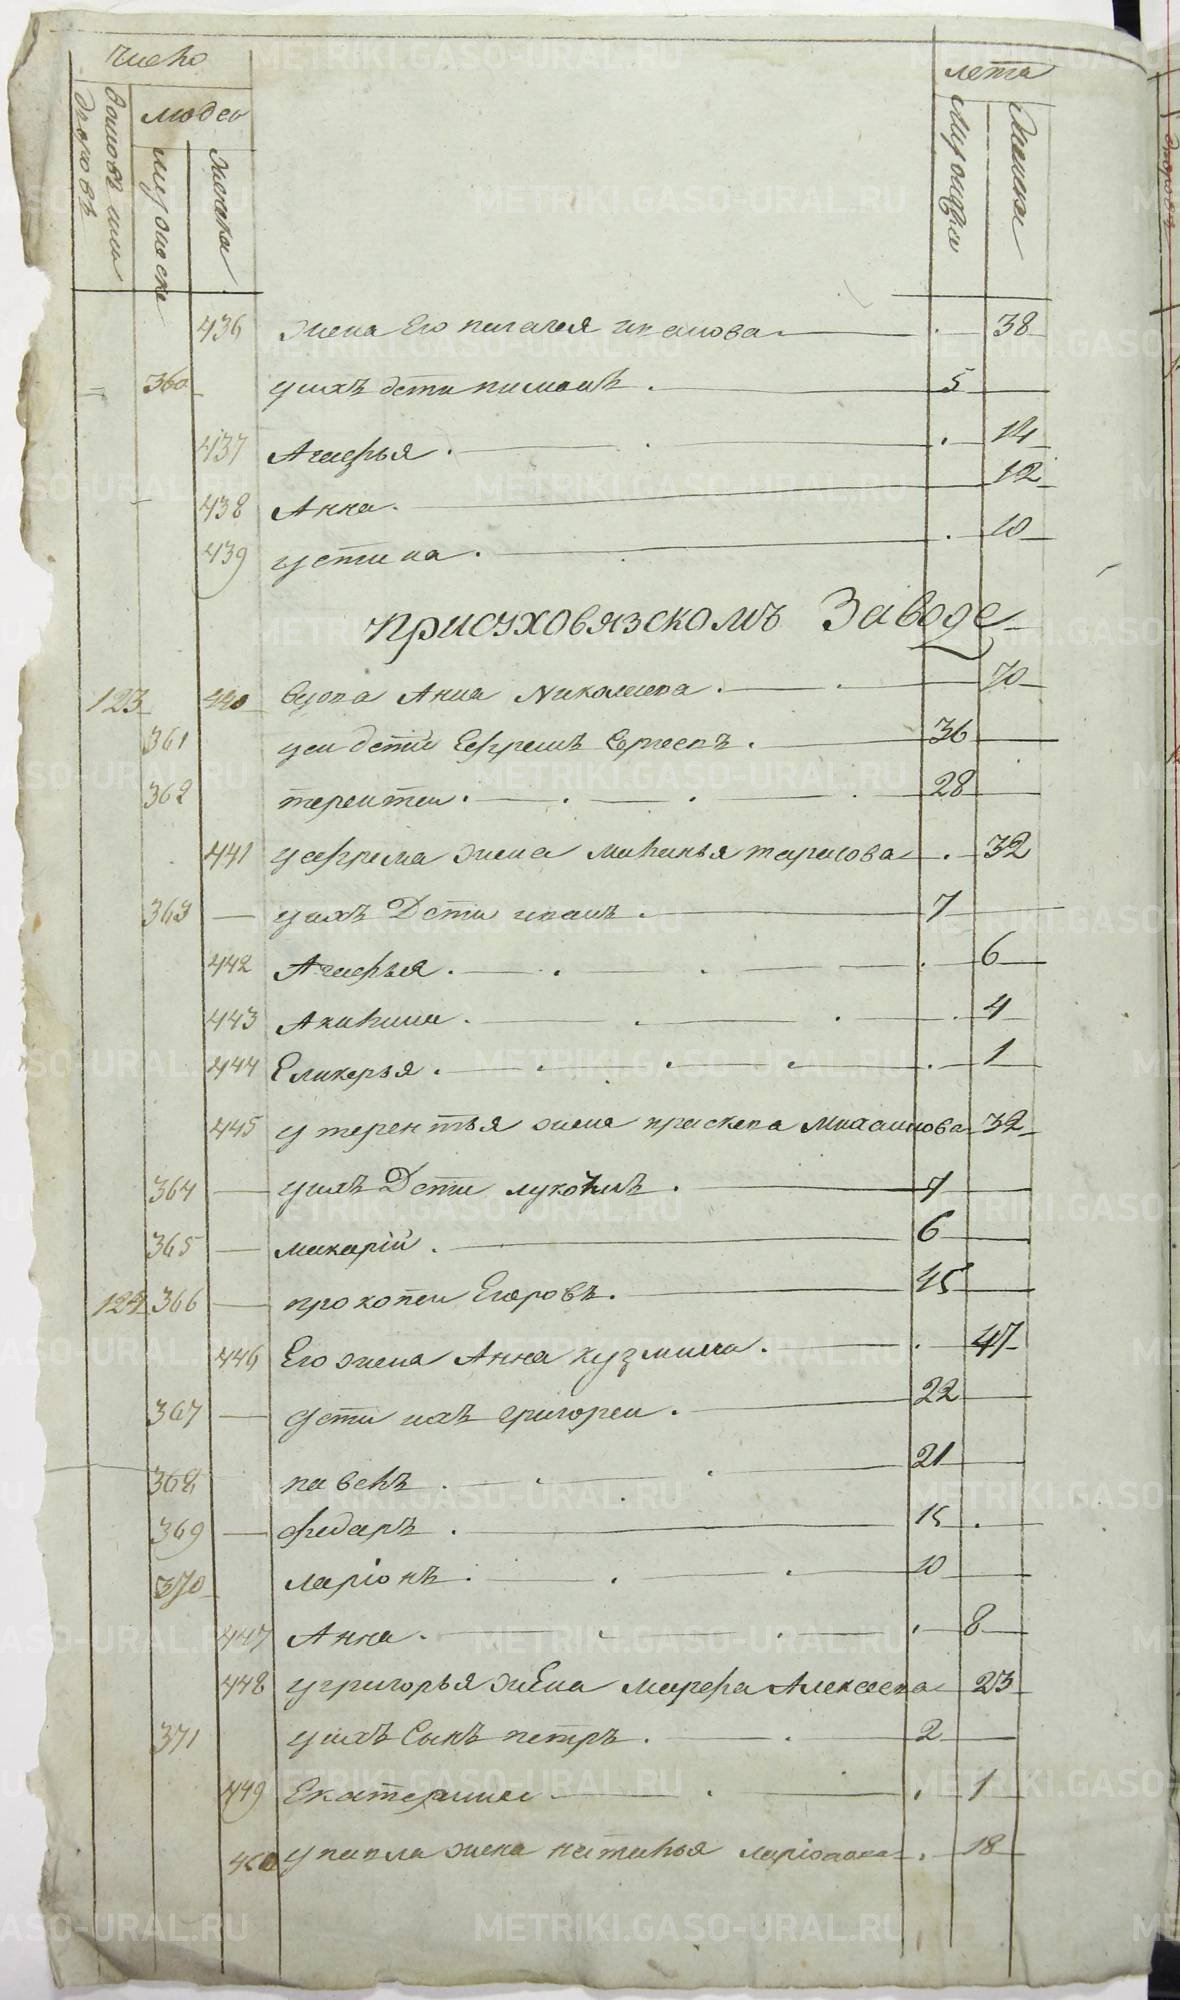 число лета
домовъ или дворовъ людеи мужеска женска мужеска женска
436 жена Его пелагея иванова 38
360 унихъ дети пимонъ 5
437 Агафья 14
438 Анна 12
439 устина 10
присуховязскомъ Заводе
123 440 вдова Анна Николаева 70
361 уеи детий Ефремъ Сергеевъ 36
362 терентеи 28
441 уефрема жена миланья тарасова 32
363 унихъ Дети иванъ 7
442 Агафья 6
443 Акилина 4
444 Гликерья 1
445 у терентья жена прасковa Михаилова 32
364 унихъ Дети лукоянъ 7
365 макарїй 6
124 366 прокопеи Егоровъ 45
446 Его жена Анна кузмина 47
367 дети ихъ григореи 22
368 павелъ 21
369 федаръ 15
370 ларїонъ 10
447 Анна 8
448 у григорья жена марфа Алексеева 23
371 унихъ Сынъ петръ 2
449 Екатерина 1
450 у павла жена наталья ларїонова 18
METRIKI.GASO-URAL.RU